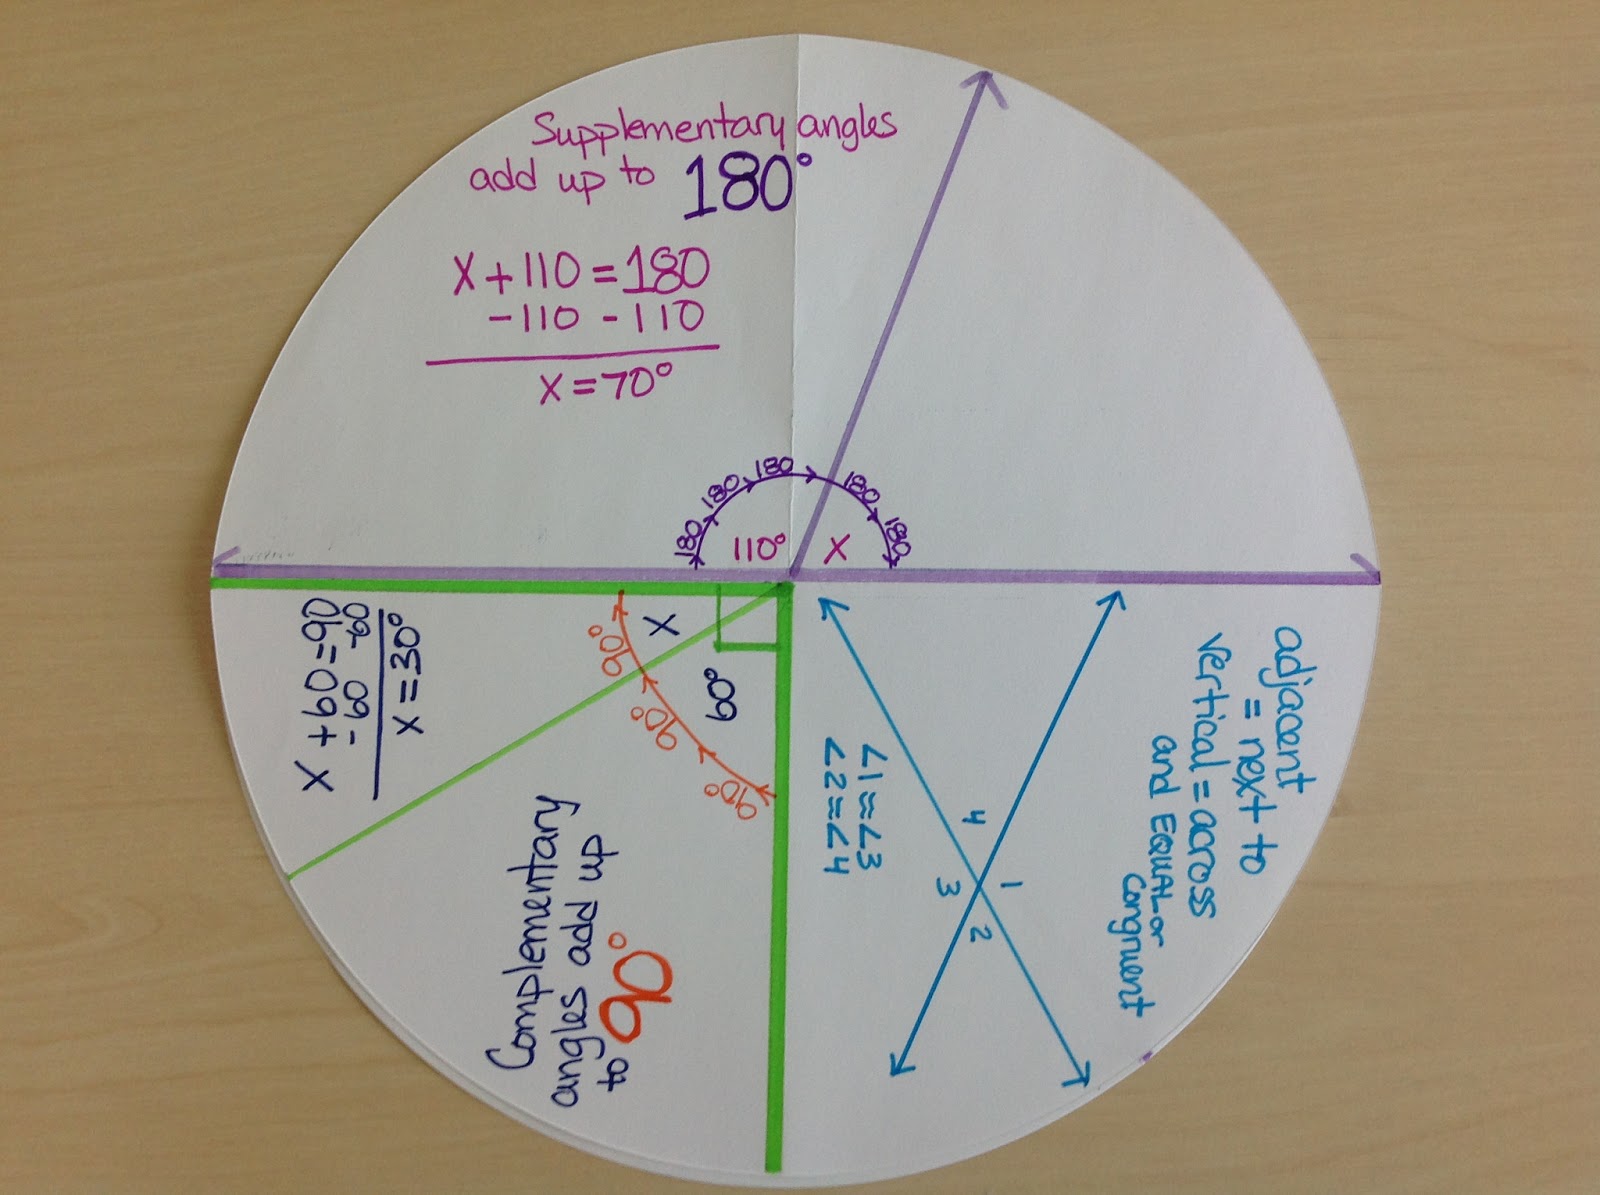 Supplementary angles
add up to 180°
x + 110 = 180
- 110 - 110
x = 70°
180 180 180 180 180
110° x
x + 60 = 90
- 60 -60
x = 30°
x
60°
90° 90° 90°
Complementary
angles add up
to 90°
adjacent
= next to
vertical = across
and EQUAL or
congruent
∠1 ≅ ∠3
∠2 ≅ ∠4
4
1
3
2